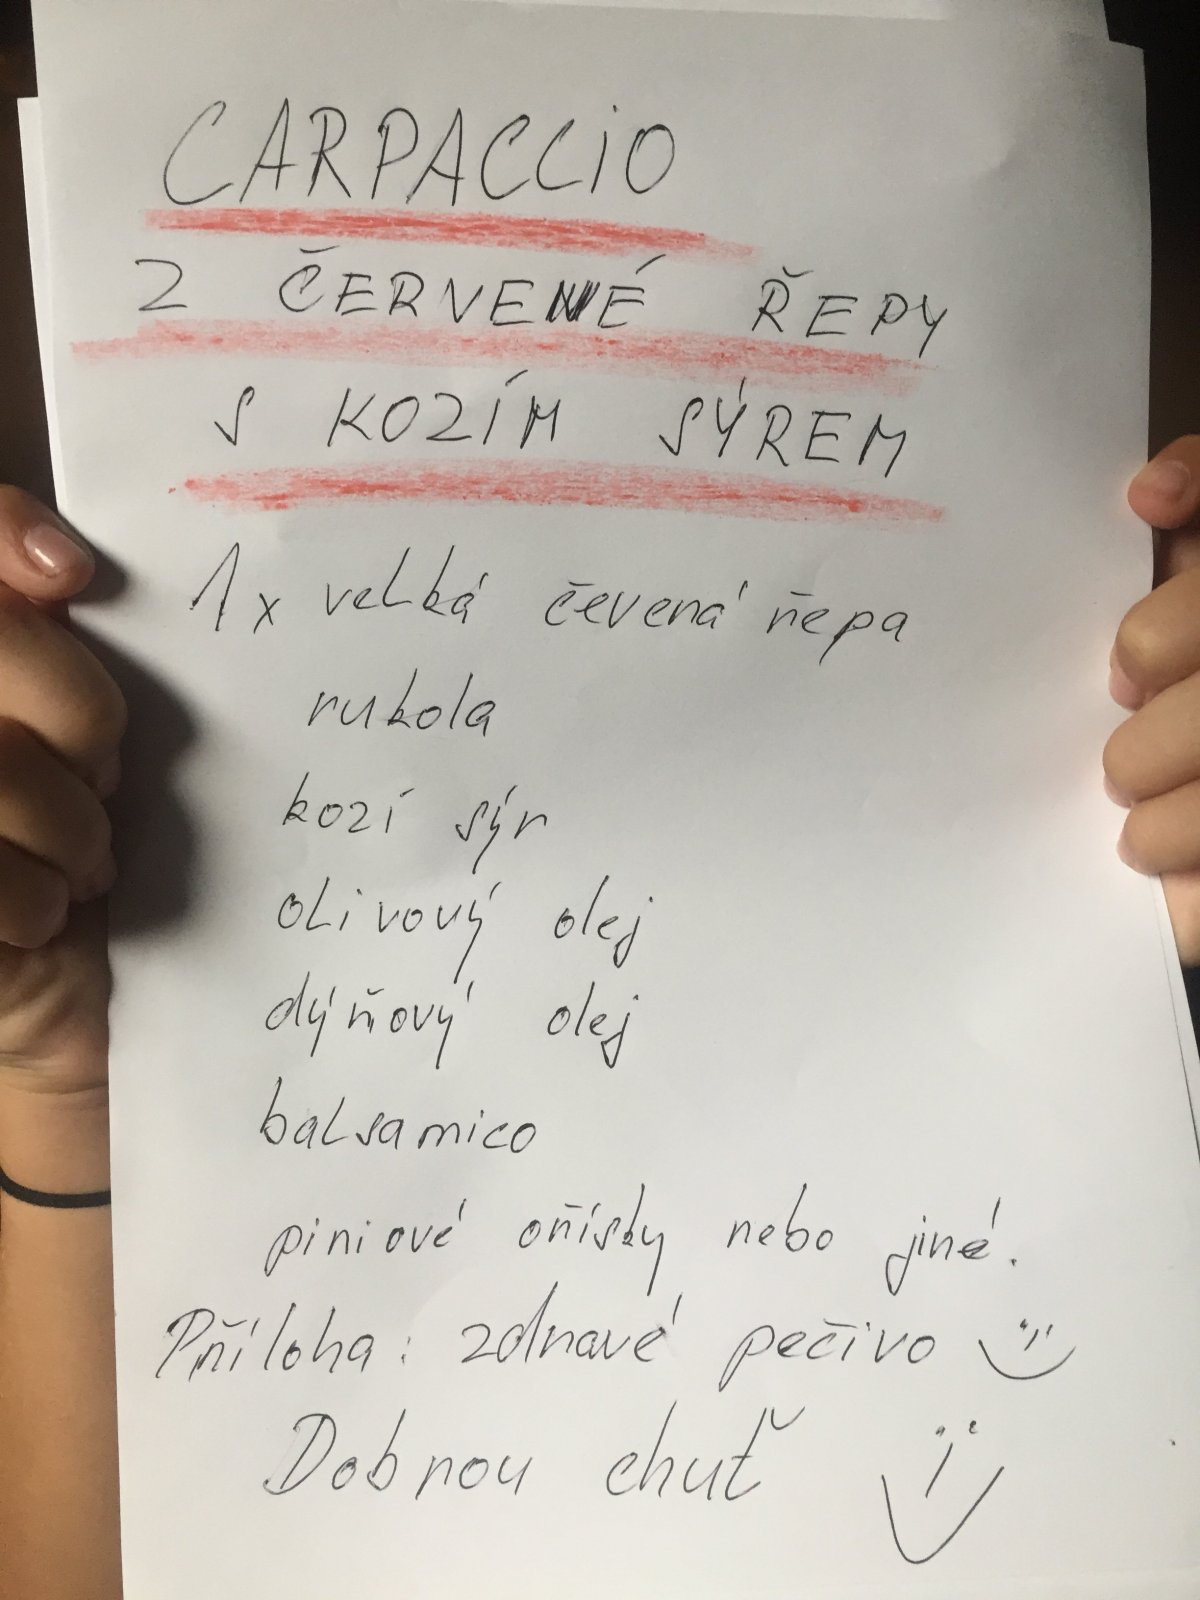 CARPACCIO
Z ČERVENÉ ŘEPY
S KOZÍM SÝREM
1x velká čevená řepa
rukola
kozí sýr
olivový olej
dýňový olej
balsamico
piniové oříšky nebo jiné.
Příloha: zdravé pečivo
Dobrou chuť